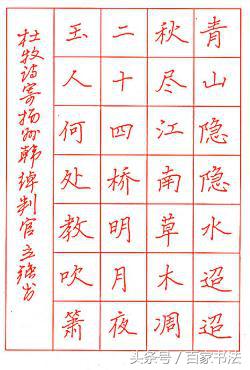 青山隐隐水迢迢
秋尽江南草木凋
二十四桥明月夜
玉人何处教吹箫
杜牧诗寄扬州韩绰判官 立强书
头条号/百家书法